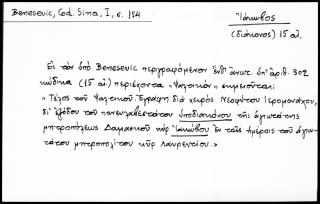 Benesevic, Cod. Sina, I, σ. 154
Ἰάκωβος
(διάκονος) 15 αἰ.
Εἰς τὸν ὑπὸ Benesevic περιγραφόμενον ἔνθ' ἀνωτ. ὑπ' ἀριθ. 302
κώδικα (15 αἰ.) περιέχοντα "Ψαλτικόν" σημειοῦται:
«Τέλος τοῦ Ψαλτικοῦ. Ἐγράφη διὰ χειρὸς Νεοφύτου Ἱερομονάχου,
δι' ἐξόδου τοῦ πανευλαβεστάτου ὑποδιακόνου τῆς ἁγιωτάτης
μητροπόλεως Δαμασκοῦ κὺρ Ἰακώβου ἐν ταῖς ἡμέραις τοῦ ἁγιω-
τάτου μητροπολίτου κὺρ Λαυρεντίου.»